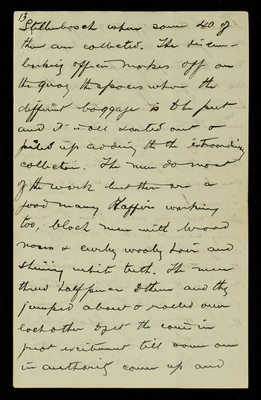 13
Stellenbosch where some 40 of
them are collected. The disem-
barking officer marks off on
the quay the spaces where the
different baggage is to be put
and it is all sorted out &
piled up adding to the extraordinary
collection. The men do most
of the work but there are a
good many Kaffirs working
too, black men with broad
noses & curly wooly hair and
shining white teeth. The men
threw half pence to them and they
jumped about & rolled over
each other to get the coins in
great excitement till some one
in authority came up and